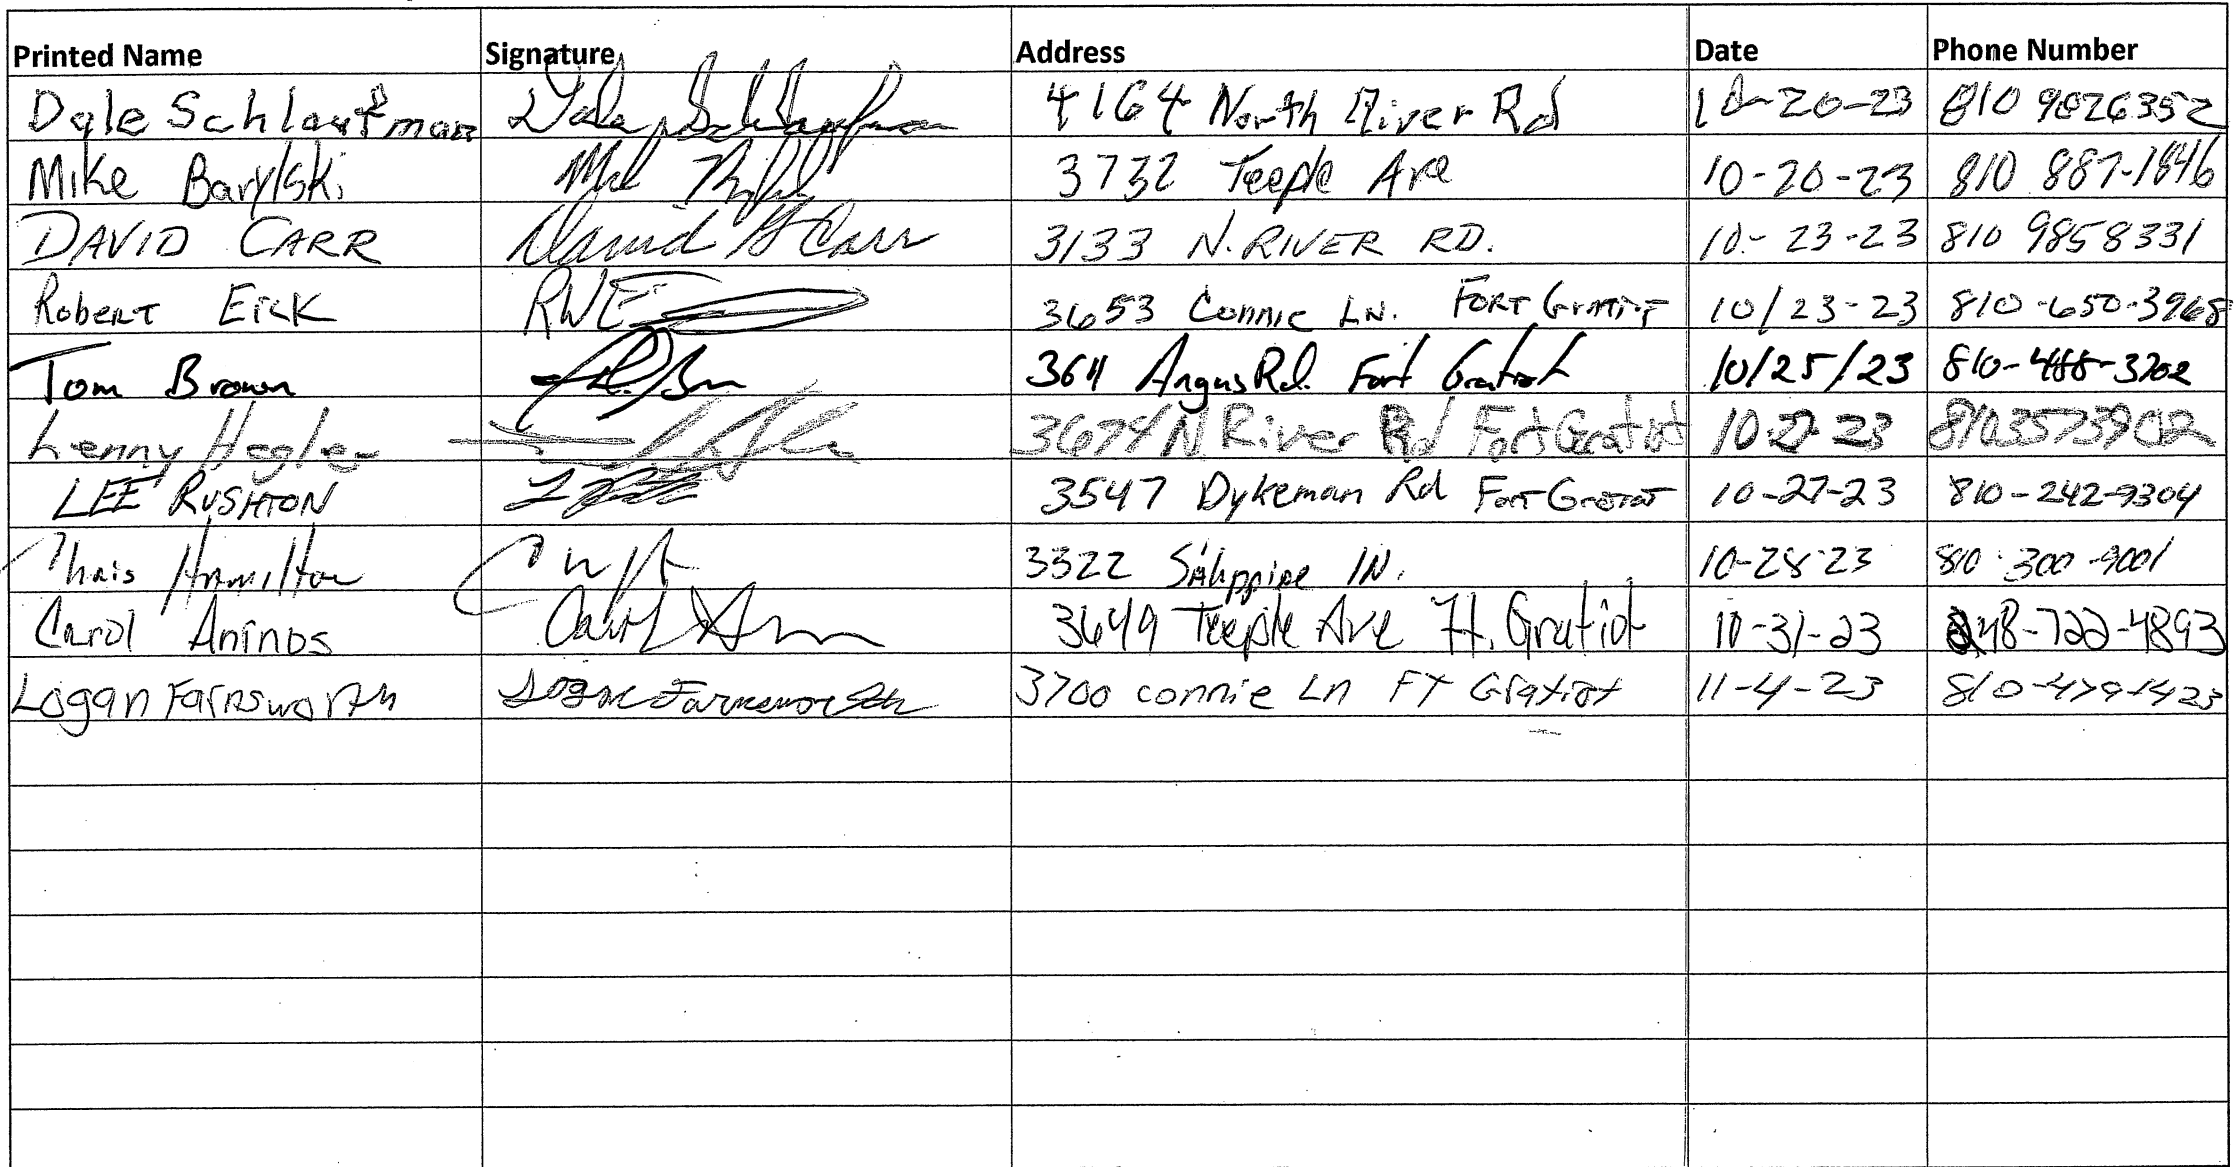 Printed Name Signature Address Date Phone Number
Dale Schlaufman Dale Schlaufman 4164 North River Rd 10-20-23 810 9026352
Mike Barylski 3732 Teeple Ave 10-20-23 810 887-1846
DAVID CARR David G Carr 3133 N. RIVER RD. 10-23-23 810 9858331
Robert Eick RWE 3653 Connie LN. FORT GRATIOT 10/23-23 810-650-3968
Tom Brown 3611 Angus Rd. Fort Gratiot 10/25/23 810-488-3702
Lenny Hagler 3674 N River Rd Fort Gratiot 10-27-23 8103573902
LEE RUSHTON 3547 Dykeman Rd Fort Gratiot 10-27-23 810-242-9304
Chris Hamilton 3322 IN. 10-28-23 810-300-9001
Carol Aninos 3649 Teeple Ave Ft. Gratiot 10-31-23 248-722-4893
Logan Farnsworth Logan Farnsworth 3700 connie Ln FT Gratiot 11-4-23 810-479-1423